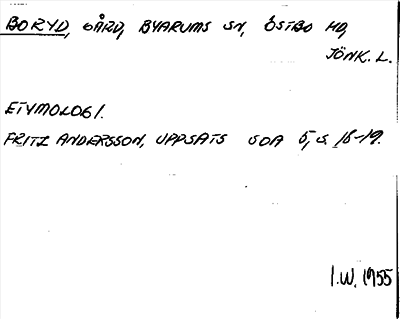 BORYD, GÅRD, BYARUMS SN, ÖSTBO HD,
JÖNK. L.
ETYMOLOGI.
FRITZ ANDERSSON, UPPSATS SOA 5, S. 18-19.
I.W. 1955